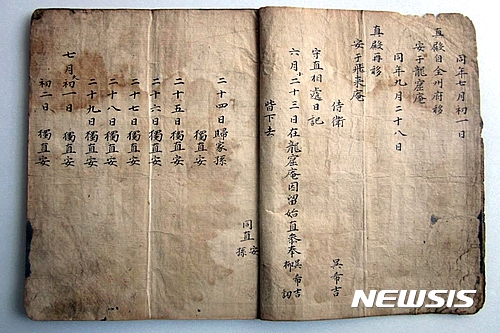 同年七月初一日
真殿自全州府移
安于龍窟庵
同年九月二十八日
真殿再移
安于飛来庵
侍衛 吳希吉
守直相遞日記
六月二十三日在龍窟庵因留始直參奉 吳希吉 柳訒
皆下去
同直 安 孫
二十四日歸家孫
獨直安
二十五日 獨直安
二十六日 獨直安
二十七日 獨直安
二十八日 獨直安
二十九日 獨直安
七月初一日 獨直安
初二日 獨直安
NEWSIS